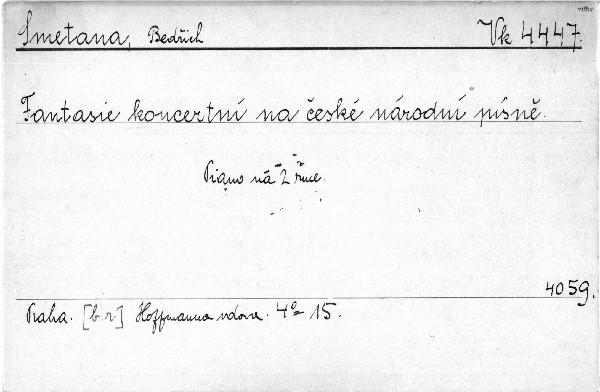 Smetana, Bedřich Vk 4447.
Fantasie koncertní na české národní písně.
Piano na 2 ruce.
4059.
Praha. [b.r.] Hoffmanna vdova. 4º 15.